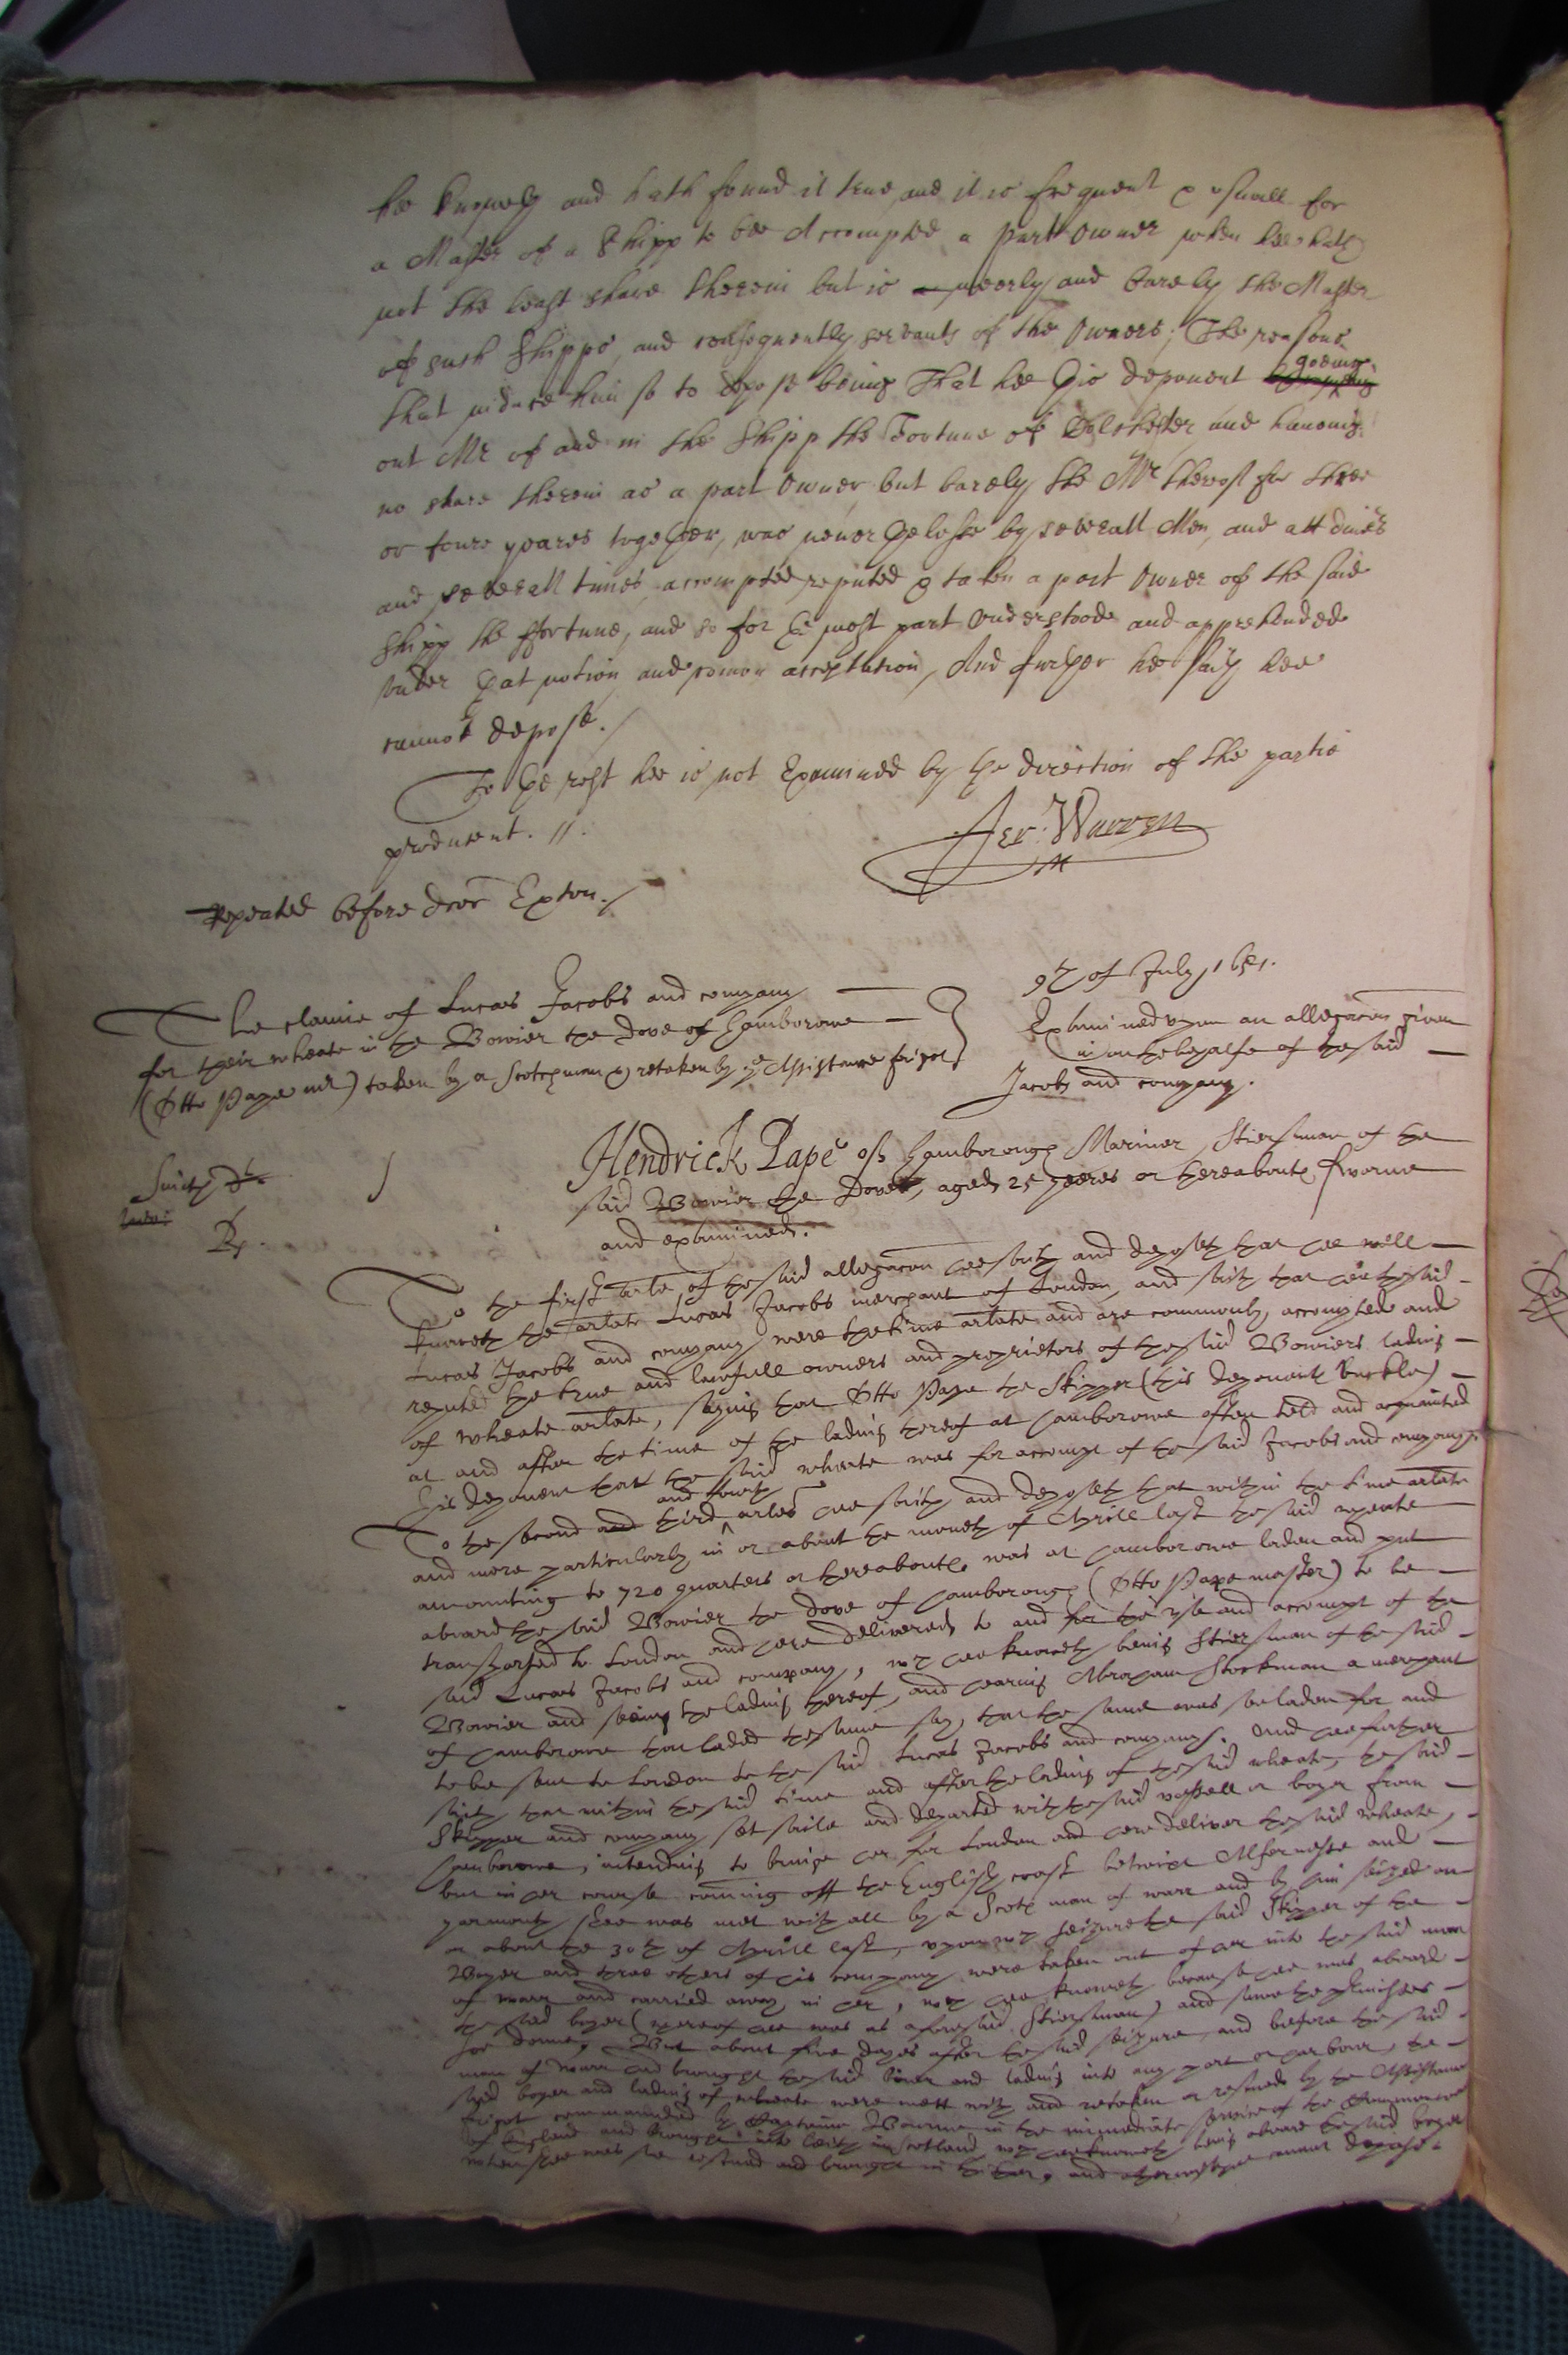 hee knoweth and hath found it true and it is frequent & usuall for
a Master of a Shipp to bee Accompted a part Owner when hee hath
not the least share therein but is meerly and barely the Master
of such Shipps, and consequently servants of the Owners; The reasons
that induce him so to depose being That hee this deponent goeing
out Mr of and in the Shipp the Fortune of Colchester and haveing
no share therein as a part Owner but barely the Mr thereof for three
or foure yeares together, was never thelesse by severall Men, and att divers
and severall times accompted reputed & taken a part Owner of the said
Shipp the ffortune, and so for the most part Understoode and apprehended
under that notion and comon acceptation, And further he saith hee
cannot depose./
To the rest hee is not Examined by the direction of the partie
producent. //.
Jer: Warren
Repeated before dcor Exton./
9th of July 1651.
The claime of Lucas Jacobs and company
for their wheate in the Bowier the Dove of Hamborowe
(Otto Pape mr) taken by a Scotchman & retaken by ye Assistance frigot
Examined upon an allegacon given
in on the behalfe of the said
Jacobs and company.
Smith dt
Rp.
Hendrick Pape of Hamborough Mariner, Stiersman of the
said Bowier the Dove, aged 25 yeeres or thereabouts sworne
and examined.
To the first arle of the said allegacon hee saith and deposeth that hee well
knoweth the arlate Lucas Jacobs merchant of London, and saith that hee the said
Lucas Jacobs and company were the time arlate and are commonly accompted and
reputed the true and lawfull owners and proprietors of the said Bowiers lading
of wheate arlate, saying that Otto Pape the Skipper (this deponents Unckle)
at and after the time of the lading thereof at hamborowe often told and acquainted
this deponent that the said wheate was for accompt of the said Jacobs and company.
To the second and third and fourth arles hee saith and deposeth that within the time arlate
and more particularly in or about the moneth of Aprill last the said wheate
amounting to 720 quarters or thereabouts was at hamborowe laden and put
aboard the said Bowier the Dove of hamborough (Otto Pape master) to be
transported to London and here delivered to and for the use and accompt of the
said Lucas Jacobs and company, wch hee knoweth being Stiersman of the said
Bowier and seeing the lading thereof, and hearing Abraham Stockman a merchant
of hamborowe that laded the same say, that the same was soe laden for and
to be sent to London to the said Lucas Jacobs and company. And hee further
saith that within the said time and after the lading of the said wheate, the said
Skipper and company set saile and departed with the said vessell or boyer from
hamborowe, intending to bringe her for London and here deliver the said wheate,
but in her course coming off the English coast betwixt Alfernesse and
yarmouth shee was met with all by a Scotch man of warr and by him seized on
or about the 30th of Aprill last, upon wch seizure the said Skipper of the
Boyer and three others of his company were taken out of her into the said man
of warr and carried away in her, wch hee knoweth because hee was aboard
the said boyer (whereof hee was as aforesaid Stiersman) and sawe the premisses
soe donne, But about five dayes after the said seizure, and before the said
man of warr had brought the said boier and lading into any port or harbour, the
said boyer and lading of wheate were mett with and retaken or rescued by the Assistance
frigot commanded by Captaine Bourne in the immediate service of the Commonwealth
of England and brought into Leith in Scotland, wch hee knoweth being aboard the said boyer
when shee was soe rescued and brought in thither, and otherwise hee cannot depose.